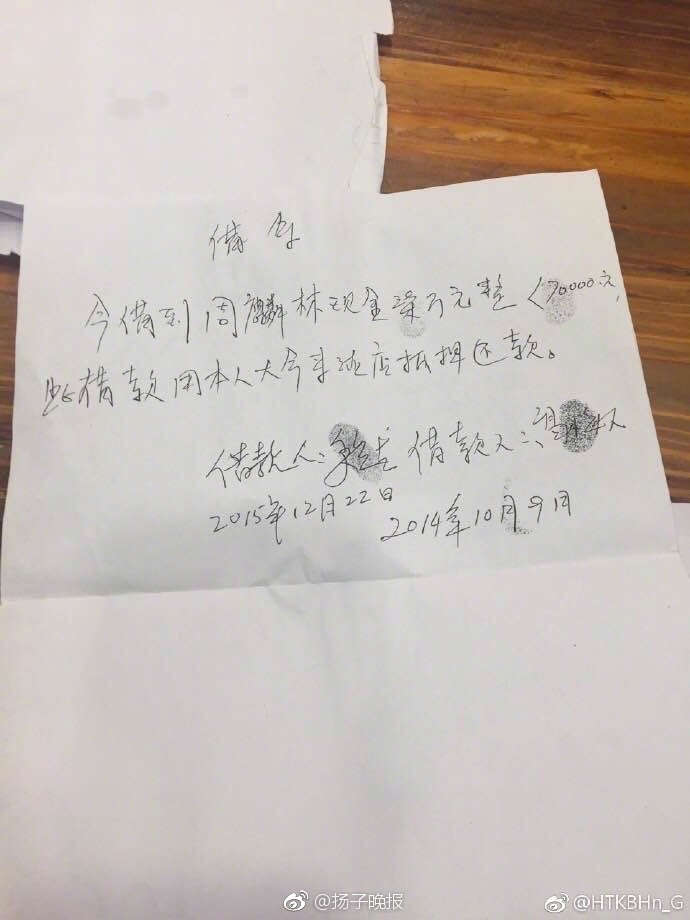 借条
今借到周麟林现金柒万元整（70000元，
此借款用本人大今来店抵押还款。
借款人： 借款人：
2015年12月22日 2014年10月9日
@扬子晚报 @HTKBHn_G